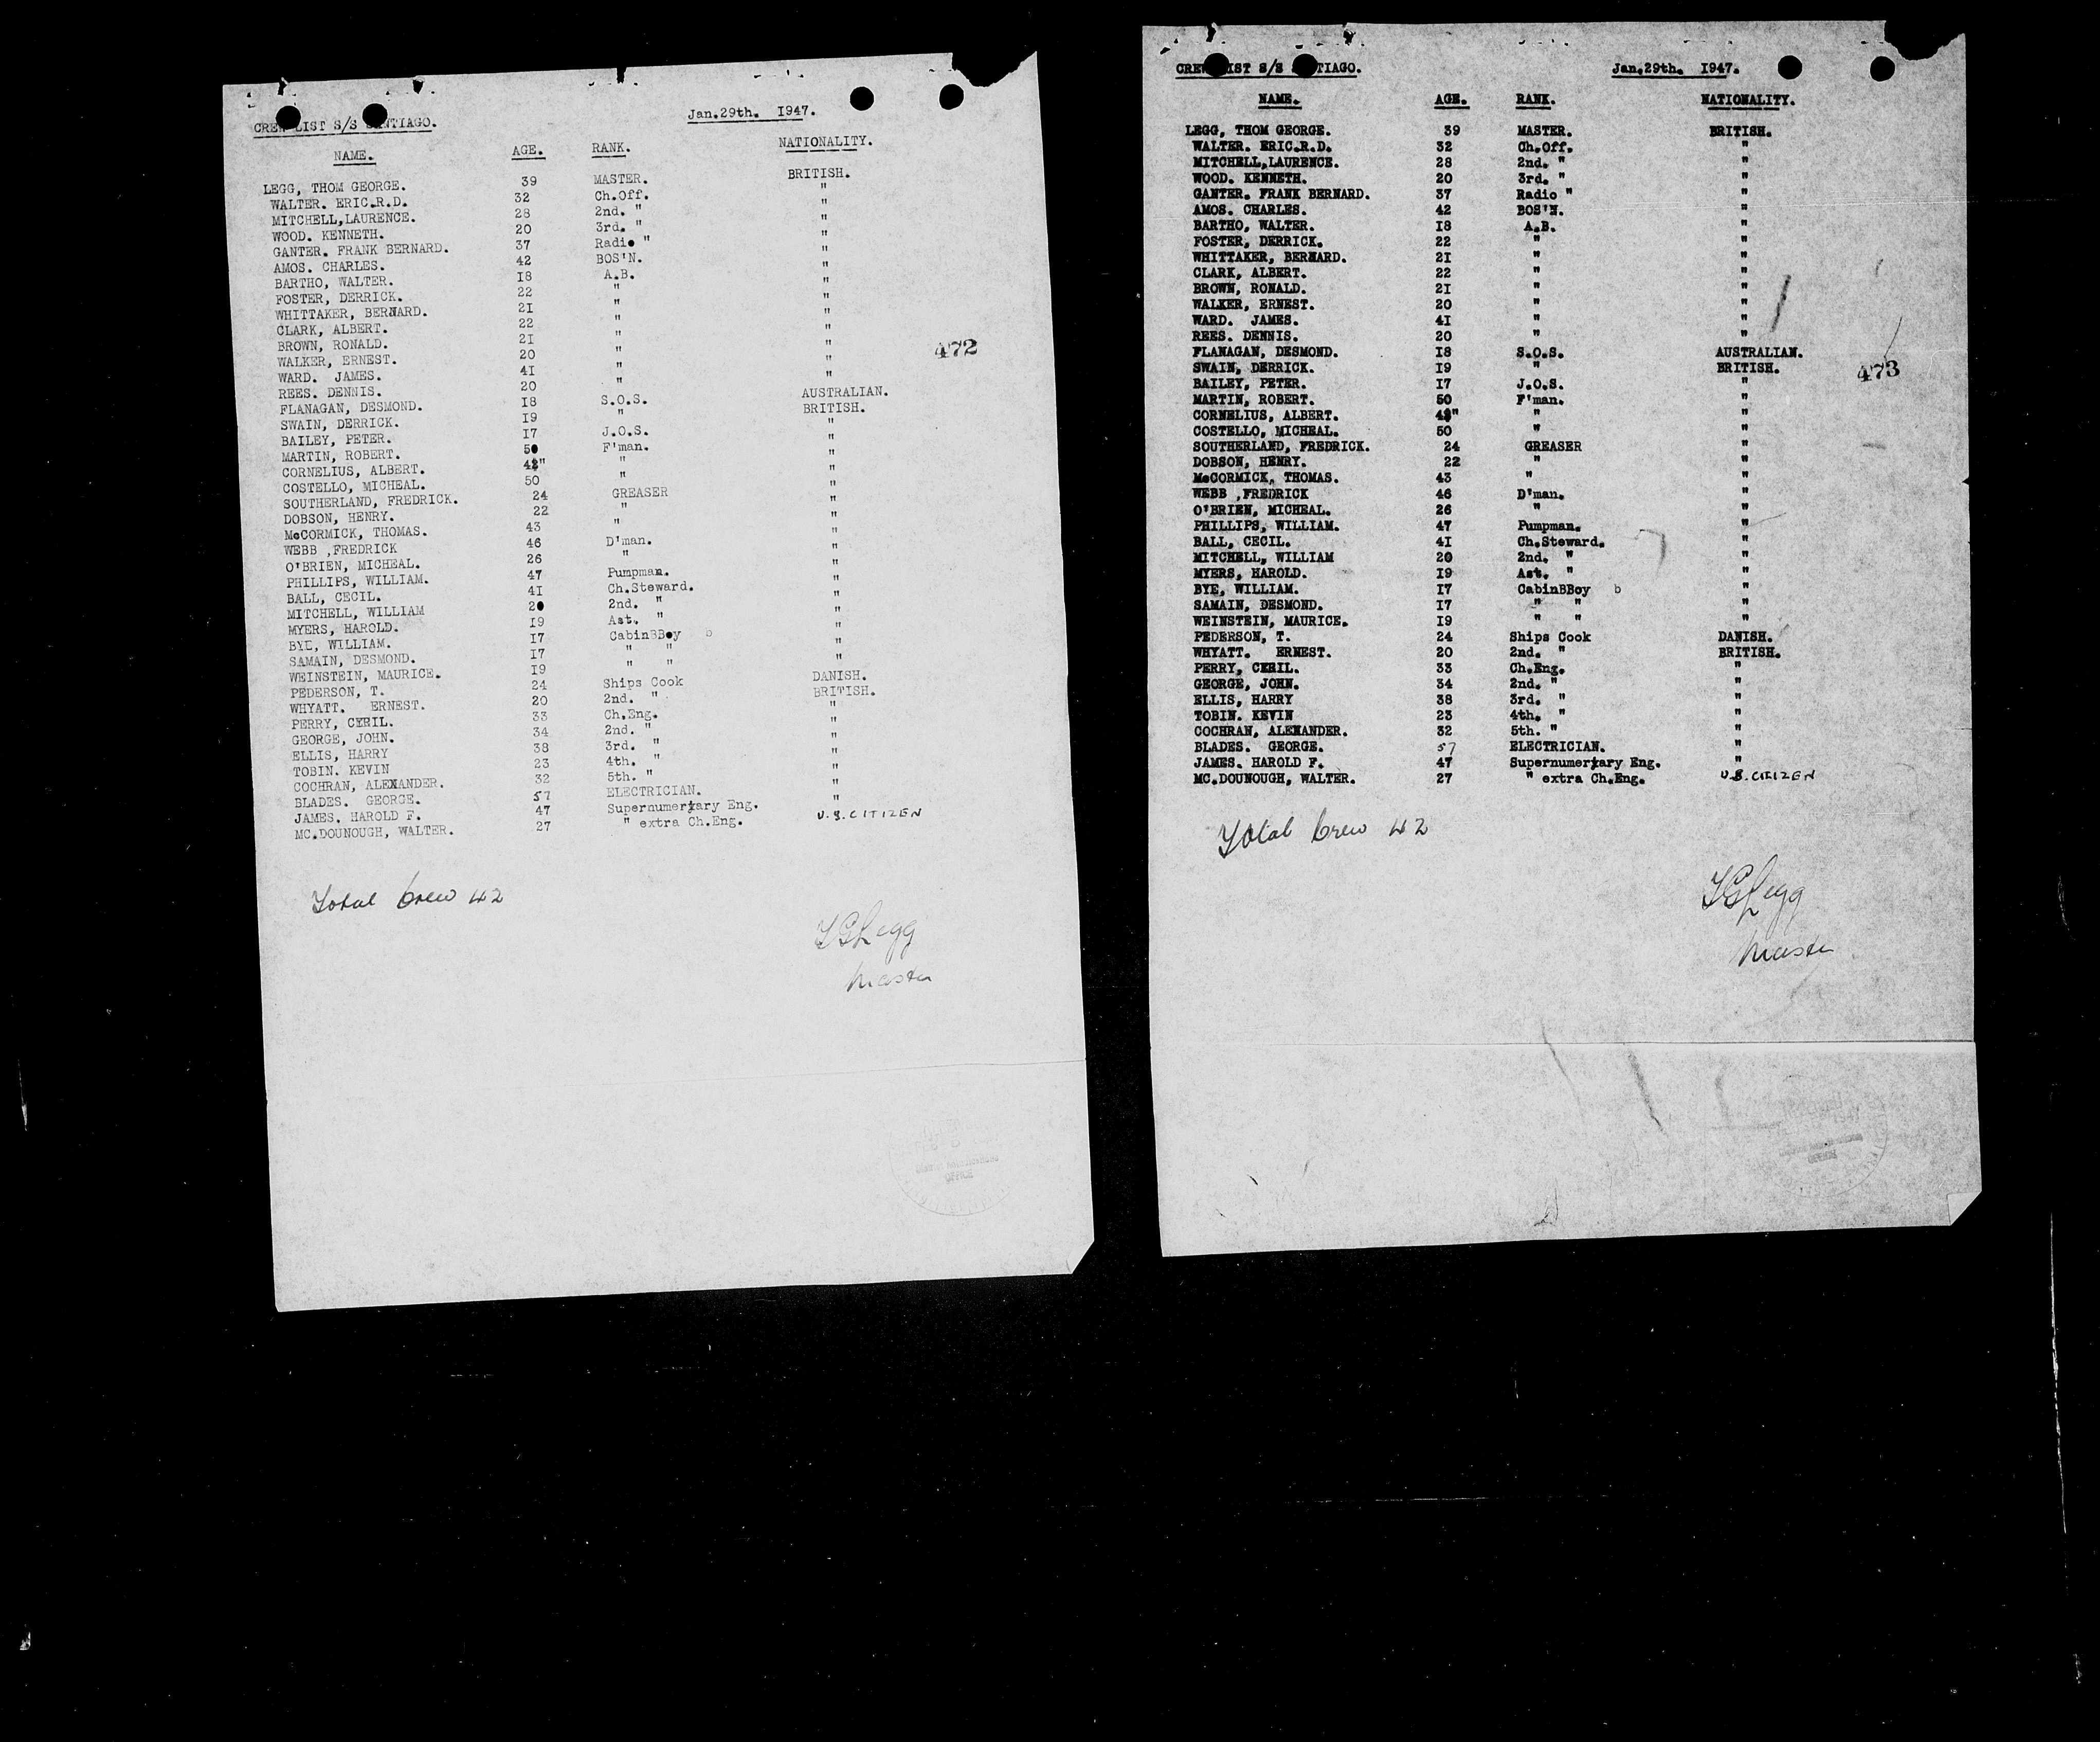 CREW LIST S/S SANTIAGO. Jan.29th. I947.
NAME. AGE. RANK. NATIONALITY.
LEGG, THOM GEORGE. 39 MASTER. BRITISH.
WALTER. ERIC.R.D. 32 Ch.Off. "
MITCHELL,LAURENCE. 28 2nd. " "
WOOD. KENNETH. 20 3rd. " "
GANTER. FRANK BERNARD. 37 Radio " "
AMOS. CHARLES. 42 BOS'N. "
BARTHO, WALTER. I8 A.B. "
FOSTER, DERRICK. 22 " "
WHITTAKER, BERNARD. 2I " "
CLARK, ALBERT. 22 " "
BROWN, RONALD. 2I " "
WALKER, ERNEST. 20 " "
WARD. JAMES. 4I " "
REES. DENNIS. 20 " "
FLANAGAN, DESMOND. I8 S.O.S. AUSTRALIAN.
SWAIN, DERRICK. I9 " BRITISH.
BAILEY, PETER. I7 J.O.S. "
MARTIN, ROBERT. 50 F'man. "
CORNELIUS, ALBERT. " "
COSTELLO, MICHEAL. 50 " "
SOUTHERLAND, FREDRICK. 24 GREASER "
DOBSON, HENRY. 22 " "
McCORMICK, THOMAS. 43 " "
WEBB ,FREDRICK 46 D'man. "
O'BRIEN, MICHEAL. 26 " "
PHILLIPS, WILLIAM. 47 Pumpman. "
BALL, CECIL. 4I Ch.Steward. "
MITCHELL, WILLIAM 20 2nd. " "
MYERS, HAROLD. I9 Ast. " "
BYE, WILLIAM. I7 CabinBBoy b "
SAMAIN, DESMOND. I7 " " "
WEINSTEIN, MAURICE. I9 " " "
PEDERSON, T. 24 Ships Cook DANISH.
WHYATT. ERNEST. 20 2nd. " BRITISH.
PERRY, CYRIL. 33 Ch.Eng. "
GEORGE, JOHN. 34 2nd. " "
ELLIS, HARRY 38 3rd. " "
TOBIN. KEVIN 23 4th. " "
COCHRAN, ALEXANDER. 32 5th. " "
BLADES. GEORGE. 57 ELECTRICIAN. "
JAMES. HAROLD F. 47 Supernumerary Eng. "
MC.DOUNOUGH, WALTER. 27 " extra Ch.Eng. U.S. CITIZEN
472
Total Crew 42
TGLegg
Master
CREW LIST S/S SANTIAGO. Jan.29th. I947.
NAME. AGE. RANK. NATIONALITY.
LEGG, THOM GEORGE. 39 MASTER. BRITISH.
WALTER. ERIC.R.D. 32 Ch.Off. "
MITCHELL,LAURENCE. 28 2nd. " "
WOOD. KENNETH. 20 3rd. " "
GANTER. FRANK BERNARD. 37 Radio " "
AMOS. CHARLES. 42 BOS'N. "
BARTHO, WALTER. I8 A.B. "
FOSTER, DERRICK. 22 " "
WHITTAKER, BERNARD. 2I " "
CLARK, ALBERT. 22 " "
BROWN, RONALD. 2I " "
WALKER, ERNEST. 20 " "
WARD. JAMES. 4I " "
REES. DENNIS. 20 " "
FLANAGAN, DESMOND. I8 S.O.S. AUSTRALIAN.
SWAIN, DERRICK. I9 " BRITISH.
BAILEY, PETER. I7 J.O.S. "
MARTIN, ROBERT. 50 F'man. "
CORNELIUS, ALBERT. " "
COSTELLO, MICHEAL. 50 " "
SOUTHERLAND, FREDRICK. 24 GREASER "
DOBSON, HENRY. 22 " "
McCORMICK, THOMAS. 43 " "
WEBB ,FREDRICK 46 D'man. "
O'BRIEN, MICHEAL. 26 " "
PHILLIPS, WILLIAM. 47 Pumpman. "
BALL, CECIL. 4I Ch.Steward. "
MITCHELL, WILLIAM 20 2nd. " "
MYERS, HAROLD. I9 Ast. " "
BYE, WILLIAM. I7 CabinBBoy b "
SAMAIN, DESMOND. I7 " " "
WEINSTEIN, MAURICE. I9 " " "
PEDERSON, T. 24 Ships Cook DANISH.
WHYATT. ERNEST. 20 2nd. " BRITISH.
PERRY, CYRIL. 33 Ch.Eng. "
GEORGE, JOHN. 34 2nd. " "
ELLIS, HARRY 38 3rd. " "
TOBIN. KEVIN 23 4th. " "
COCHRAN, ALEXANDER. 32 5th. " "
BLADES. GEORGE. 57 ELECTRICIAN. "
JAMES. HAROLD F. 47 Supernumerary Eng. "
MC.DOUNOUGH, WALTER. 27 " extra Ch.Eng. U.S. CITIZEN
473
Total Crew 42
TGLegg
Master